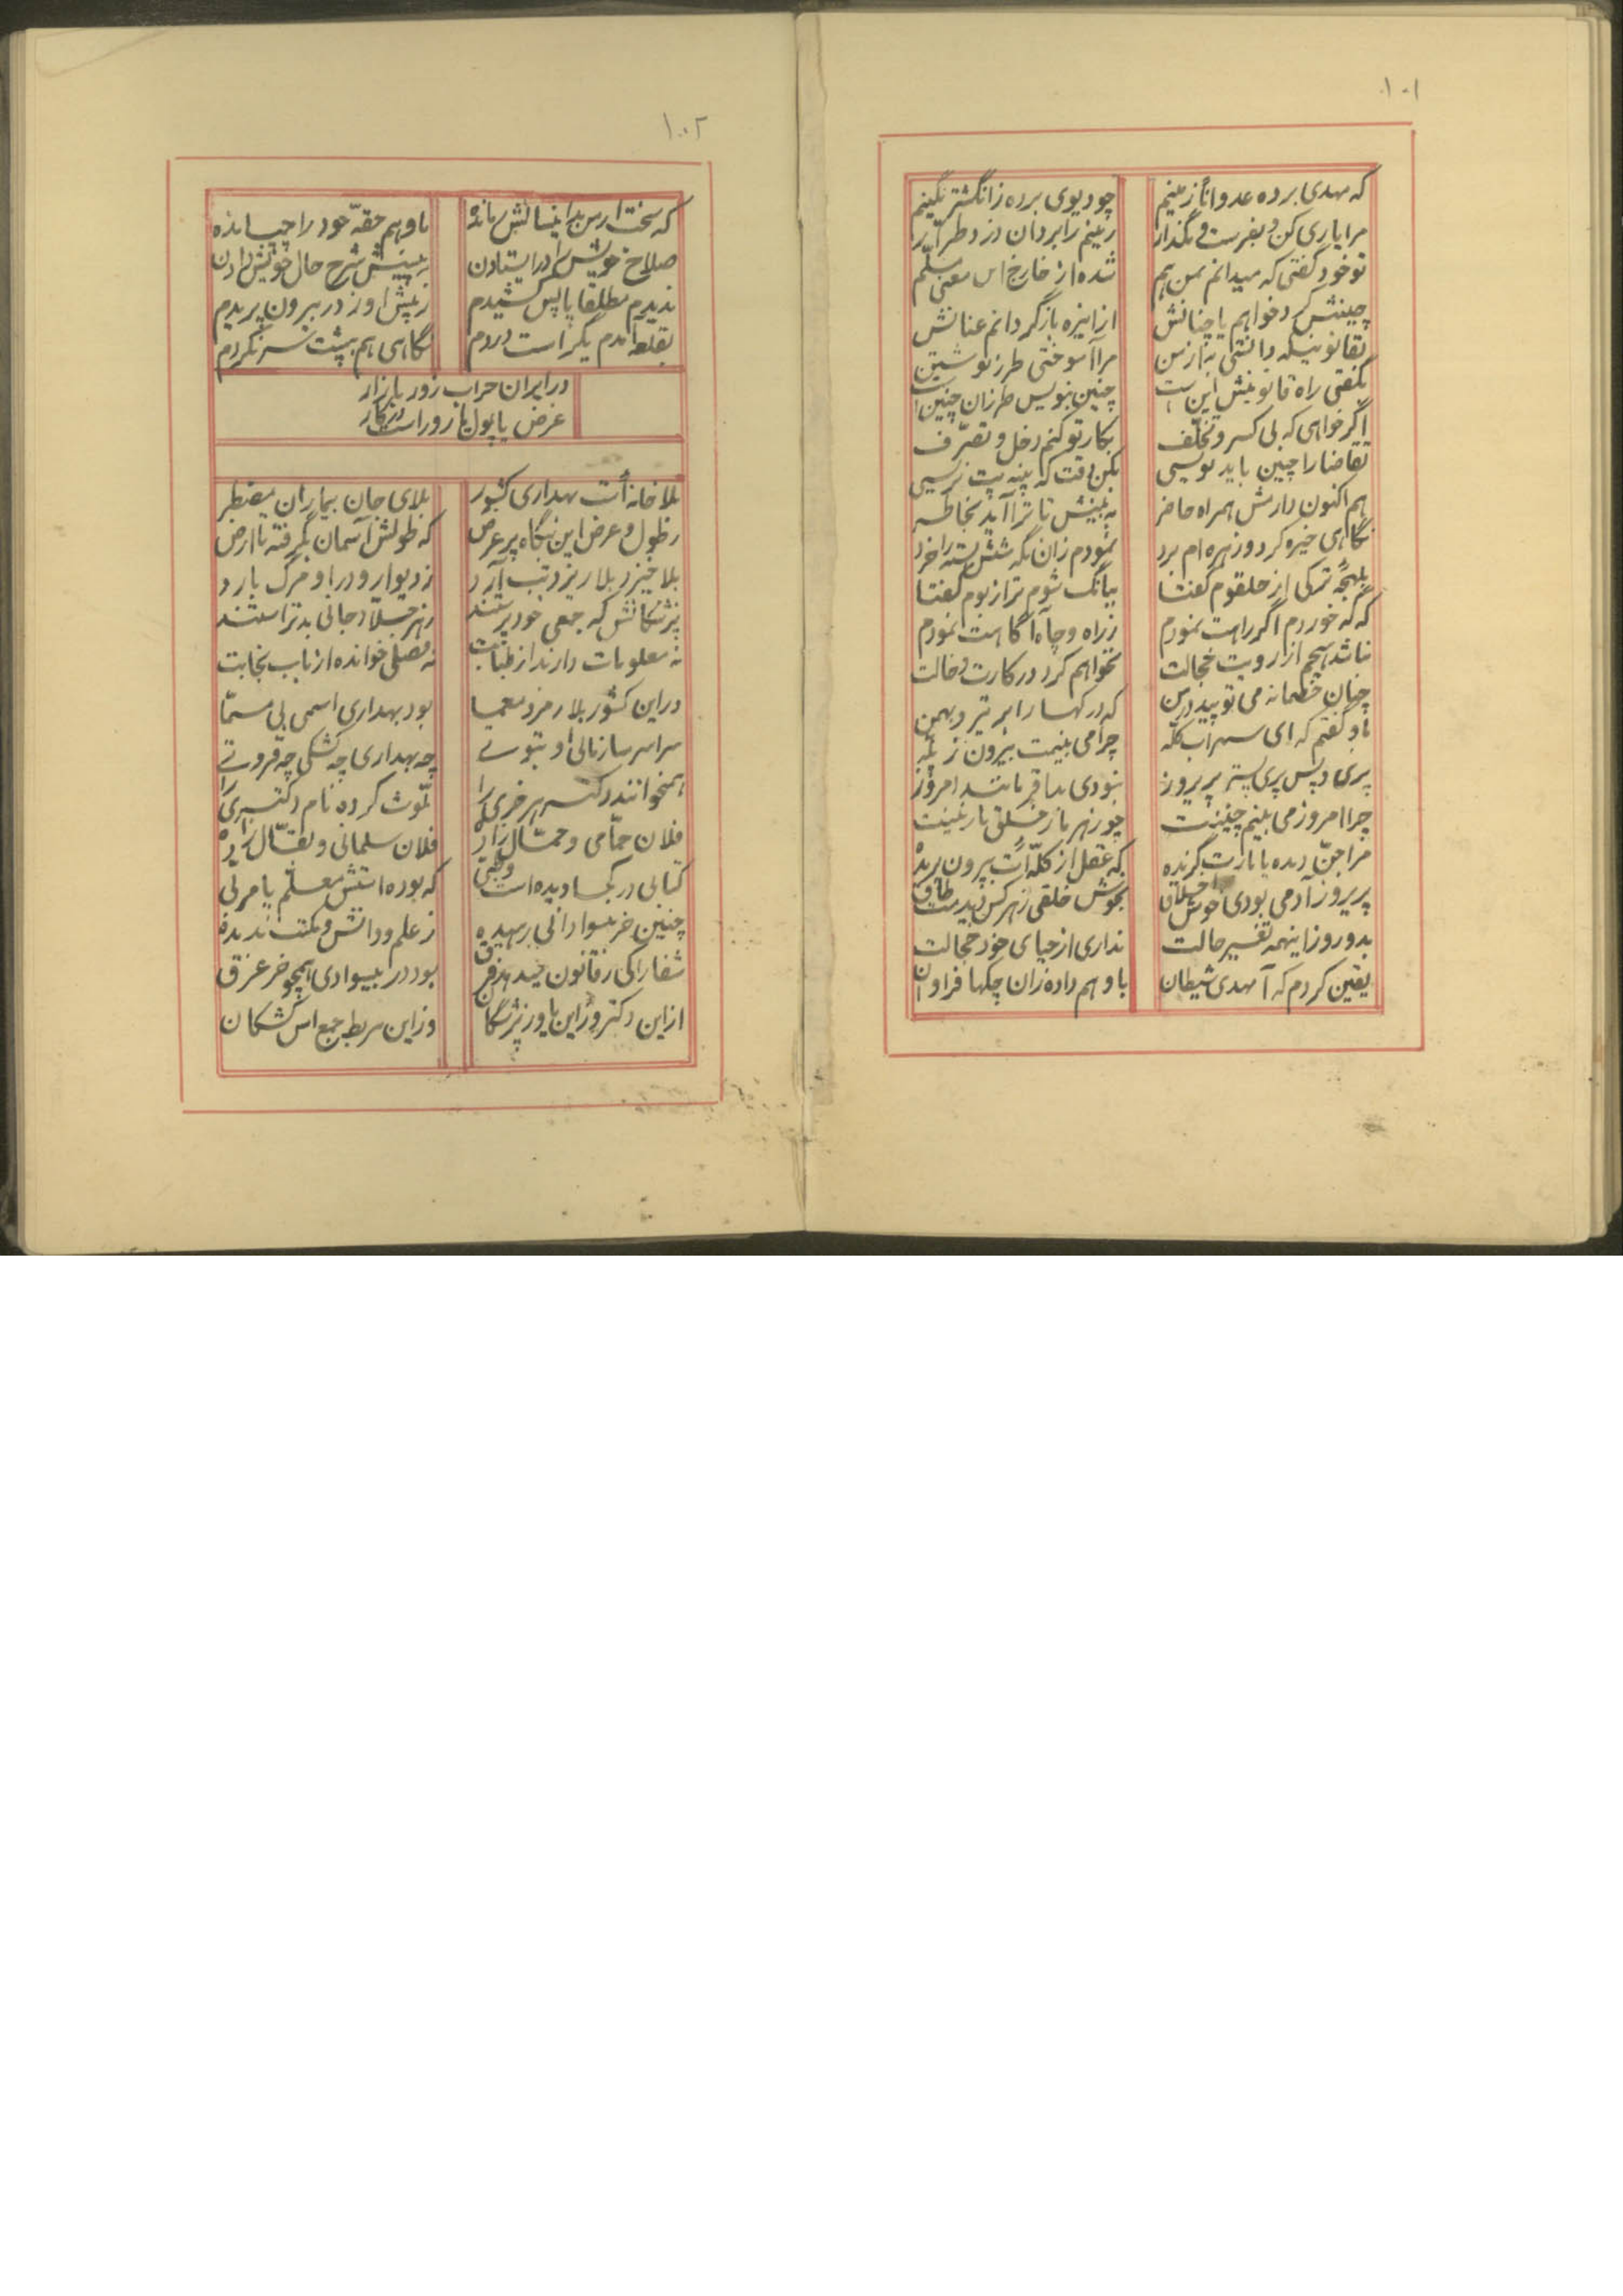 ۱۰۱
که مهدی برده عدوانا زمینم چو دیوی برده ز انگشتر نگینم
مرا یاری کن و بفرست و مگذار زمینم را برد آن دزد طرار
تو خود گفتی که میدانم من هم شده از خارج این معنی مسلم
چنینش کرد خواهم یا چنانش از انیزه بازگردانم عنانش
بقانونیکه دانستی به از من مرا آموختی طرز نوشتن
بگفتی راه قانونیش این است چنین بنویس طرز آن چنین است
اگر خواهی که بی کسر و تخلف بکار تو کنم دخل و تصرف
تقاضا را چنین باید نویسی
هم اکنون دارمش همراه حاضر به بینش تا ترا آید بخاطر
نگاهی خیره کرد و زهره ام برد نمودم زان نگه
بلهجه ترکی از حلقوم گفتا ببانگ شوم تر از بوم گفتا
که که خوردم اگر راهت نمودم ز راه و چاه آگاهت نمودم
نباشد هیچم از رویت خجالت نخواهم کرد در کارت دخالت
چنان خصمانه می توپید در من که در کهسار ابر تیر و بهمن
باو گفتم که ای سهراب کله چرا می بینمت بیرون ز گله
پری و پس پری پستر پریروز نبودی بد مانند امروز
چرا امروز می بینم چنینت چو زهر مار خلق نازنینت
مرا جن دیده یا مارت گزنده که عقل از کله ات بیرون پریده
پریروز آدمی بودی خوش اخلاق بخوش خلقی ز هر کس دیدمت طاق
بدو روز اینهمه تغییر حالت نداری از حیای خود خجالت
یقین کردم که آ مهدی شیطان باو هم داده زان چکها فراوان
۱۰۲
که سخت باو هم حقه خود را چپانده
صلاح خویش را در ایستادن به پیشش شرح حال خویش دادن
ندیدم مطلقا پا پس کشیدم ز پیش او ز در بیرون پریدم
بقلعه آمدم یکراست دردم نگاهی هم بپشت سر نکردم
در ایران خراب زور بازار
غرض یا پول یا زور است در کار
بلا خانه است بهداری کشور بلای جان بیماران مضطر
ز طول و عرض این بنگاه پر عرض که طولش آسمان بگرفته تا ارض
بلا خیزد بلا ریزد تب آرد ز دیوار و در او مرگ بارد
پزشکانش که جمعی خودپرستند ز هر جلاد جانی بدتر استند
نه معلومات دارند از طبابت نه فصلی خوانده از باب نجابت
در این کشور بلا رمز و معما بود بهداری اسمی بی مسما
سراسر سازمانی او بتونی چه بهداری چه کشکی چه قروتی
همیخوانند دکتر هر خری را ملوث کرده نام دکتری را
فلان حمامی و حمال زاده فلان سلمانی و بقال زاده
کتابی در کجا دیده است که بوده استش معلم یا مربی
چنین خر بیسوادانی رهیده ز علم و دانش و مکتب ندیده
شفا را کی ز قانون میدهد فرق بود در بیسوادی همچو خر غرق
از این دکتر وز این یاور پزشکان وز این سربط جمع اس کشکان